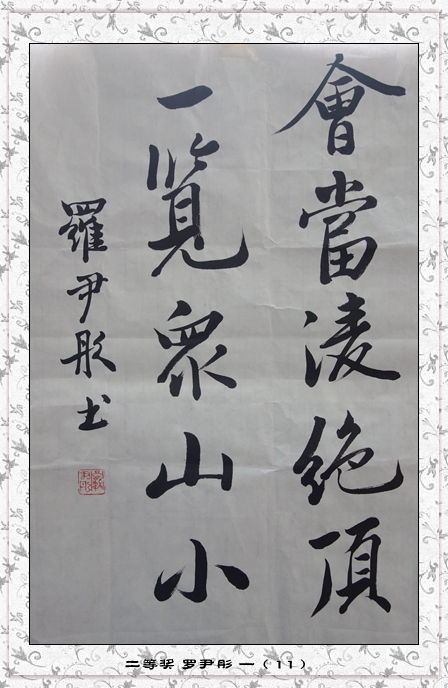 會當淩絶頂
一覧眾山小
羅尹彤书
二等奖 罗尹彤 一（11）